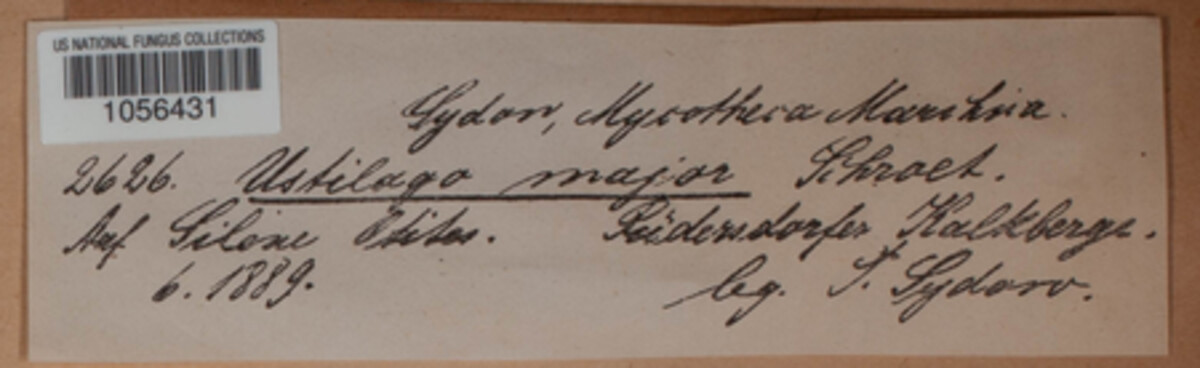 US NATIONAL FUNGUS COLLECTIONS
1056431
Sydow, Mycotheca Marchica.
2626. Ustilago major Schroet.
Auf Silene Otites. Rüdersdorfer Kalkberge.
6. 1889. leg. P. Sydow.